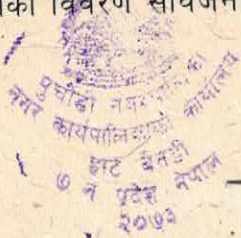 को विवरण सार्वजन
पुर्चौडी नगरपालिका
नगर कार्यपालिकाको कार्यालय
झाट बैतडी
७ नं प्रदेश नेपाल
२०७३